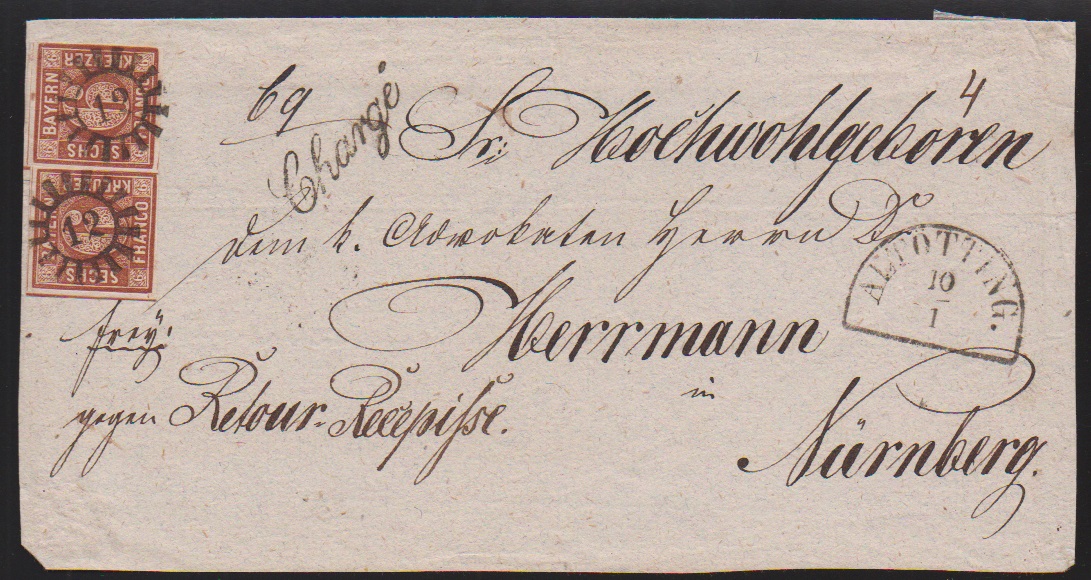 BAYERN KREUZER FRANCO SECHS
12
BAYERN KREUZER FRANCO SECHS
12
69
4
Chargé
Sr: Hochwohlgeboren
dem k. Advokaten Herrn Dr
ALTÖTTING.
10
1
Herrmann
frey:
in
gegen Retour-Recepisse.
Nürnberg.